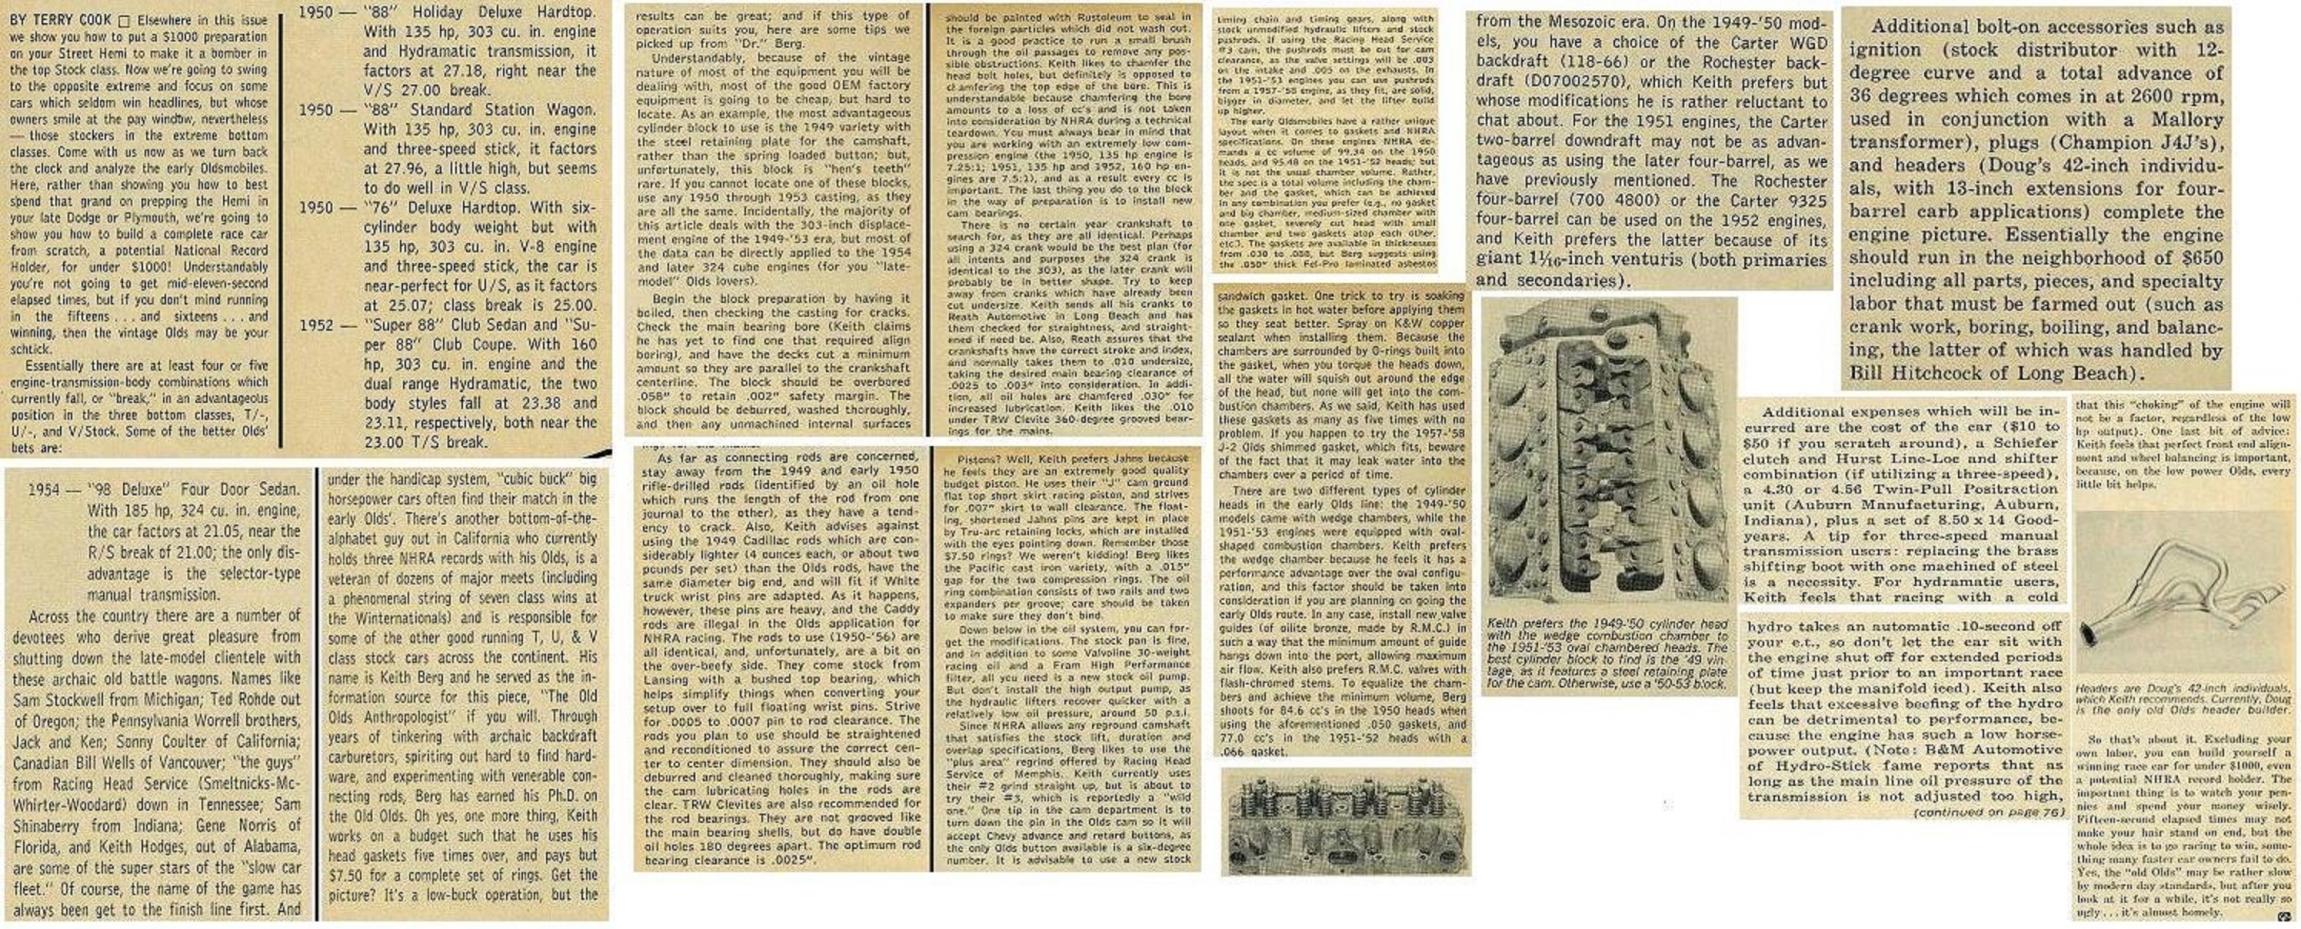 BY TERRY COOK □ Elsewhere in this issue
we show you how to put a $1000 preparation
on your Street Hemi to make it a bomber in
the top Stock class. Now we're going to swing
to the opposite extreme and focus on some
cars which seldom win headlines, but whose
owners smile at the pay window, nevertheless
— those stockers in the extreme bottom
classes. Come with us now as we turn back
the clock and analyze the early Oldsmobiles.
Here, rather than showing you how to best
spend that grand on prepping the Hemi in
your late Dodge or Plymouth, we're going to
show you how to build a complete race car
from scratch, a potential National Record
Holder, for under $1000! Understandably
you're not going to get mid-eleven-second
elapsed times, but if you don't mind running
in the fifteens . . . and sixteens . . . and
winning, then the vintage Olds may be your
schtick.
Essentially there are at least four or five
engine-transmission-body combinations which
currently fall, or "break," in an advantageous
position in the three bottom classes, T/-,
U/-, and V/Stock. Some of the better Olds'
bets are:
1950 — "88" Holiday Deluxe Hardtop.
With 135 hp, 303 cu. in. engine
and Hydramatic transmission, it
factors at 27.18, right near the
V/S 27.00 break.
1950 — "88" Standard Station Wagon.
With 135 hp, 303 cu. in. engine
and three-speed stick, it factors
at 27.96, a little high, but seems
to do well in V/S class.
1950 — "76" Deluxe Hardtop. With six-
cylinder body weight but with
135 hp, 303 cu. in. V-8 engine
and three-speed stick, the car is
near-perfect for U/S, as it factors
at 25.07; class break is 25.00.
1952 — "Super 88" Club Sedan and "Su-
per 88" Club Coupe. With 160
hp, 303 cu. in. engine and the
dual range Hydramatic, the two
body styles fall at 23.38 and
23.11, respectively, both near the
23.00 T/S break.
1954 — "98 Deluxe" Four Door Sedan.
With 185 hp, 324 cu. in. engine,
the car factors at 21.05, near the
R/S break of 21.00; the only dis-
advantage is the selector-type
manual transmission.
Across the country there are a number of
devotees who derive great pleasure from
shutting down the late-model clientele with
these archaic old battle wagons. Names like
Sam Stockwell from Michigan; Ted Rohde out
of Oregon; the Pennsylvania Worrell brothers,
Jack and Ken; Sonny Coulter of California;
Canadian Bill Wells of Vancouver; "the guys"
from Racing Head Service (Smeltnicks-Mc-
Whirter-Woodard) down in Tennessee; Sam
Shinaberry from Indiana; Gene Norris of
Florida, and Keith Hodges, out of Alabama,
are some of the super stars of the "slow car
fleet." Of course, the name of the game has
always been get to the finish line first. And
under the handicap system, "cubic buck" big
horsepower cars often find their match in the
early Olds'. There's another bottom-of-the-
alphabet guy out in California who currently
holds three NHRA records with his Olds, is a
veteran of dozens of major meets (including
a phenomenal string of seven class wins at
the Winternationals) and is responsible for
some of the other good running T, U, & V
class stock cars across the continent. His
name is Keith Berg and he served as the in-
formation source for this piece, "The Old
Olds Anthropologist" if you will. Through
years of tinkering with archaic backdraft
carburetors, spiriting out hard to find hard-
ware, and experimenting with venerable con-
necting rods, Berg has earned his Ph.D. on
the Old Olds. Oh yes, one more thing, Keith
works on a budget such that he uses his
head gaskets five times over, and pays but
$7.50 for a complete set of rings. Get the
picture? It's a low-buck operation, but the
results can be great; and if this type of
operation suits you, here are some tips we
picked up from "Dr." Berg.
Understandably, because of the vintage
nature of most of the equipment you will be
dealing with, most of the good OEM factory
equipment is going to be cheap, but hard to
locate. As an example, the most advantageous
cylinder block to use is the 1949 variety with
the steel retaining plate for the camshaft,
rather than the spring loaded button; but,
unfortunately, this block is "hen's teeth"
rare. If you cannot locate one of these blocks,
use any 1950 through 1953 casting, as they
are all the same. Incidentally, the majority of
this article deals with the 303-inch displace-
ment engine of the 1949-'53 era, but most of
the data can be directly applied to the 1954
and later 324 cube engines (for you "late-
model" Olds lovers).
Begin the block preparation by having it
boiled, then checking the casting for cracks.
Check the main bearing bore (Keith claims
he has yet to find one that required align
boring), and have the decks cut a minimum
amount so they are parallel to the crankshaft
centerline. The block should be overbored
.058" to retain .002" safety margin. The
block should be deburred, washed thoroughly,
and then any unmachined internal surfaces
should be painted with Rustoleum to seal in
the foreign particles which did not wash out.
It is a good practice to run a small brush
through the oil passages to remove any pos-
sible obstructions. Keith likes to chamfer the
head bolt holes, but definitely is opposed to
chamfering the top edge of the bore. This is
understandable because chamfering the bore
amounts to a loss of cc's and is not taken
into consideration by NHRA during a technical
teardown. You must always bear in mind that
you are working with an extremely low com-
pression engine (the 1950, 135 hp engine is
7.25:1; 1951, 135 hp and 1952, 160 hp en-
gines are 7.5:1), and as a result every cc is
important. The last thing you do to the block
in the way of preparation is to install new
cam bearings.
There is no certain year crankshaft to
search for, as they are all identical. Perhaps
using a 324 crank would be the best plan (for
all intents and purposes the 324 crank is
identical to the 303), as the later crank will
probably be in better shape. Try to keep
away from cranks which have already been
cut undersize. Keith sends all his cranks to
Reath Automotive in Long Beach and has
them checked for straightness, and straight-
ened if need be. Also, Reath assures that the
crankshafts have the correct stroke and index,
and normally takes them to .010 undersize,
taking the desired main bearing clearance of
.0025 to .003" into consideration. In addi-
tion, all oil holes are chamfered .030" for
increased lubrication. Keith likes the .010
under TRW Clevite 360-degree grooved bear-
ings for the mains.
As far as connecting rods are concerned,
stay away from the 1949 and early 1950
rifle-drilled rods (identified by an oil hole
which runs the length of the rod from one
journal to the other), as they have a tend-
ency to crack. Also, Keith advises against
using the 1949 Cadillac rods which are con-
siderably lighter (4 ounces each, or about two
pounds per set) than the Olds rods, have the
same diameter big end, and will fit if White
truck wrist pins are adapted. As it happens,
however, these pins are heavy, and the Caddy
rods are illegal in the Olds application for
NHRA racing. The rods to use (1950-'56) are
all identical, and, unfortunately, are a bit on
the over-beefy side. They come stock from
Lansing with a bushed top bearing, which
helps simplify things when converting your
setup over to full floating wrist pins. Strive
for .0005 to .0007 pin to rod clearance. The
rods you plan to use should be straightened
and reconditioned to assure the correct cen-
ter to center dimension. They should also be
deburred and cleaned thoroughly, making sure
the cam lubricating holes in the rods are
clear. TRW Clevites are also recommended for
the rod bearings. They are not grooved like
the main bearing shells, but do have double
oil holes 180 degrees apart. The optimum rod
bearing clearance is .0025".
Pistons? Well, Keith prefers Jahns because
he feels they are an extremely good quality
budget piston. He uses their "J" cam ground
flat top short skirt racing piston, and strives
for .007" skirt to wall clearance. The float-
ing, shortened Jahns pins are kept in place
by Tru-arc retaining locks, which are installed
with the eyes pointing down. Remember those
$7.50 rings? We weren't kidding! Berg likes
the Pacific cast iron variety, with a .015"
gap for the two compression rings. The oil
ring combination consists of two rails and two
expanders per groove; care should be taken
to make sure they don't bind.
Down below in the oil system, you can for-
get the modifications. The stock pan is fine,
and in addition to some Valvoline 30-weight
racing oil and a Fram High Performance
filter, all you need is a new stock oil pump.
But don't install the high output pump, as
the hydraulic lifters recover quicker with a
relatively low oil pressure, around 50 p.s.i.
Since NHRA allows any reground camshaft
that satisfies the stock lift, duration and
overlap specifications, Berg likes to use the
"plus area" regrind offered by Racing Head
Service of Memphis. Keith currently uses
their #2 grind straight up, but is about to
try their #3, which is reportedly a "wild
one." One tip in the cam department is to
turn down the pin in the Olds cam so it will
accept Chevy advance and retard buttons, as
the only Olds button available is a six-degree
number. It is advisable to use a new stock
timing chain and timing gears, along with
stock unmodified hydraulic lifters and stock
pushrods. If using the Racing Head Service
#3 cam, the pushrods must be cut for cam
clearance, as the valve settings will be .003
on the intake and .005 on the exhausts. In
the 1951-'53 engines you can use pushrods
from a 1957-'58 engine, as they fit, are solid,
bigger in diameter, and let the lifter build
up higher.
The early Oldsmobiles have a rather unique
layout when it comes to gaskets and NHRA
specifications. On these engines NHRA de-
mands a cc volume of 99.34 on the 1950
heads, and 95.48 on the 1951-'52 heads; but
it is not the usual chamber volume. Rather,
the spec is a total volume including the cham-
ber and the gasket, which can be achieved
in any combination you prefer (e.g., no gasket
and big chamber, medium-sized chamber with
one gasket, severely cut head with small
chamber and two gaskets atop each other,
etc.). The gaskets are available in thicknesses
from .030 to .058, but Berg suggests using
the .050" thick Fel-Pro laminated asbestos
sandwich gasket. One trick to try is soaking
the gaskets in hot water before applying them
so they seat better. Spray on K&W copper
sealant when installing them. Because the
chambers are surrounded by O-rings built into
the gasket, when you torque the heads down,
all the water will squish out around the edge
of the head, but none will get into the com-
bustion chambers. As we said, Keith has used
these gaskets as many as five times with no
problem. If you happen to try the 1957-'58
J-2 Olds shimmed gasket, which fits, beware
of the fact that it may leak water into the
chambers over a period of time.
There are two different types of cylinder
heads in the early Olds line: the 1949-'50
models came with wedge chambers, while the
1951-'53 engines were equipped with oval-
shaped combustion chambers. Keith prefers
the wedge chamber because he feels it has a
performance advantage over the oval configu-
ration, and this factor should be taken into
consideration if you are planning on going the
early Olds route. In any case, install new valve
guides (of oilite bronze, made by R.M.C.) in
such a way that the minimum amount of guide
hangs down into the port, allowing maximum
air flow. Keith also prefers R.M.C. valves with
flash-chromed stems. To equalize the cham-
bers and achieve the minimum volume, Berg
shoots for 84.6 cc's in the 1950 heads when
using the aforementioned .050 gaskets, and
77.0 cc's in the 1951-'52 heads with a
.066 gasket.
from the Mesozoic era. On the 1949-'50 mod-
els, you have a choice of the Carter WGD
backdraft (118-66) or the Rochester back-
draft (D07002570), which Keith prefers but
whose modifications he is rather reluctant to
chat about. For the 1951 engines, the Carter
two-barrel downdraft may not be as advan-
tageous as using the later four-barrel, as we
have previously mentioned. The Rochester
four-barrel (700 4800) or the Carter 9325
four-barrel can be used on the 1952 engines,
and Keith prefers the latter because of its
giant 1 1/16-inch venturis (both primaries
and secondaries).
Keith prefers the 1949-'50 cylinder head
with the wedge combustion chamber to
the 1951-'53 oval chambered heads. The
best cylinder block to find is the '49 vin-
tage, as it features a steel retaining plate
for the cam. Otherwise, use a '50-53 block.
Additional bolt-on accessories such as
ignition (stock distributor with 12-
degree curve and a total advance of
36 degrees which comes in at 2600 rpm,
used in conjunction with a Mallory
transformer), plugs (Champion J4J's),
and headers (Doug's 42-inch individu-
als, with 13-inch extensions for four-
barrel carb applications) complete the
engine picture. Essentially the engine
should run in the neighborhood of $650
including all parts, pieces, and specialty
labor that must be farmed out (such as
crank work, boring, boiling, and balanc-
ing, the latter of which was handled by
Bill Hitchcock of Long Beach).
Additional expenses which will be in-
curred are the cost of the car ($10 to
$50 if you scratch around), a Schiefer
clutch and Hurst Line-Loc and shifter
combination (if utilizing a three-speed),
a 4.30 or 4.56 Twin-Pull Positraction
unit (Auburn Manufacturing, Auburn,
Indiana), plus a set of 8.50 x 14 Good-
years. A tip for three-speed manual
transmission users: replacing the brass
shifting boot with one machined of steel
is a necessity. For hydramatic users,
Keith feels that racing with a cold
hydro takes an automatic .10-second off
your e.t., so don't let the car sit with
the engine shut off for extended periods
of time just prior to an important race
(but keep the manifold iced). Keith also
feels that excessive beefing of the hydro
can be detrimental to performance, be-
cause the engine has such a low horse-
power output. (Note: B&M Automotive
of Hydro-Stick fame reports that as
long as the main line oil pressure of the
transmission is not adjusted too high,
(continued on page 76)
that this "choking" of the engine will
not be a factor, regardless of the low
hp output). One last bit of advice:
Keith feels that perfect front end align-
ment and wheel balancing is important,
because, on the low power Olds, every
little bit helps.
Headers are Doug's 42-inch individuals,
which Keith recommends. Currently, Doug
is the only old Olds header builder.
So that's about it. Excluding your
own labor, you can build yourself a
winning race car for under $1000, even
a potential NHRA record holder. The
important thing is to watch your pen-
nies and spend your money wisely.
Fifteen-second elapsed times may not
make your hair stand on end, but the
whole idea is to go racing to win, some-
thing many faster car owners fail to do.
Yes, the "old Olds" may be rather slow
by modern day standards, but after you
look at it for a while, it's not really so
ugly . . . it's almost homely.